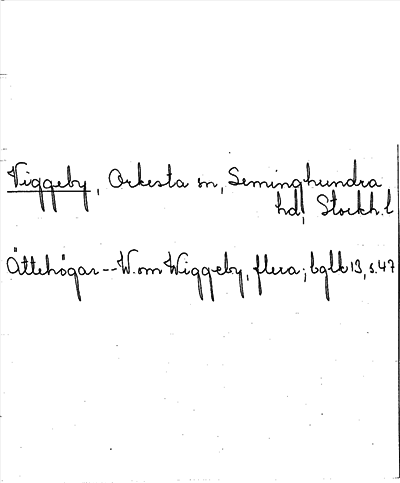 Viggeby, Orkesta sn, Seminghundra
hd, Stockh. l
Ättehögar -- W. om Wiggeby, flera; bglb 13, s. 47